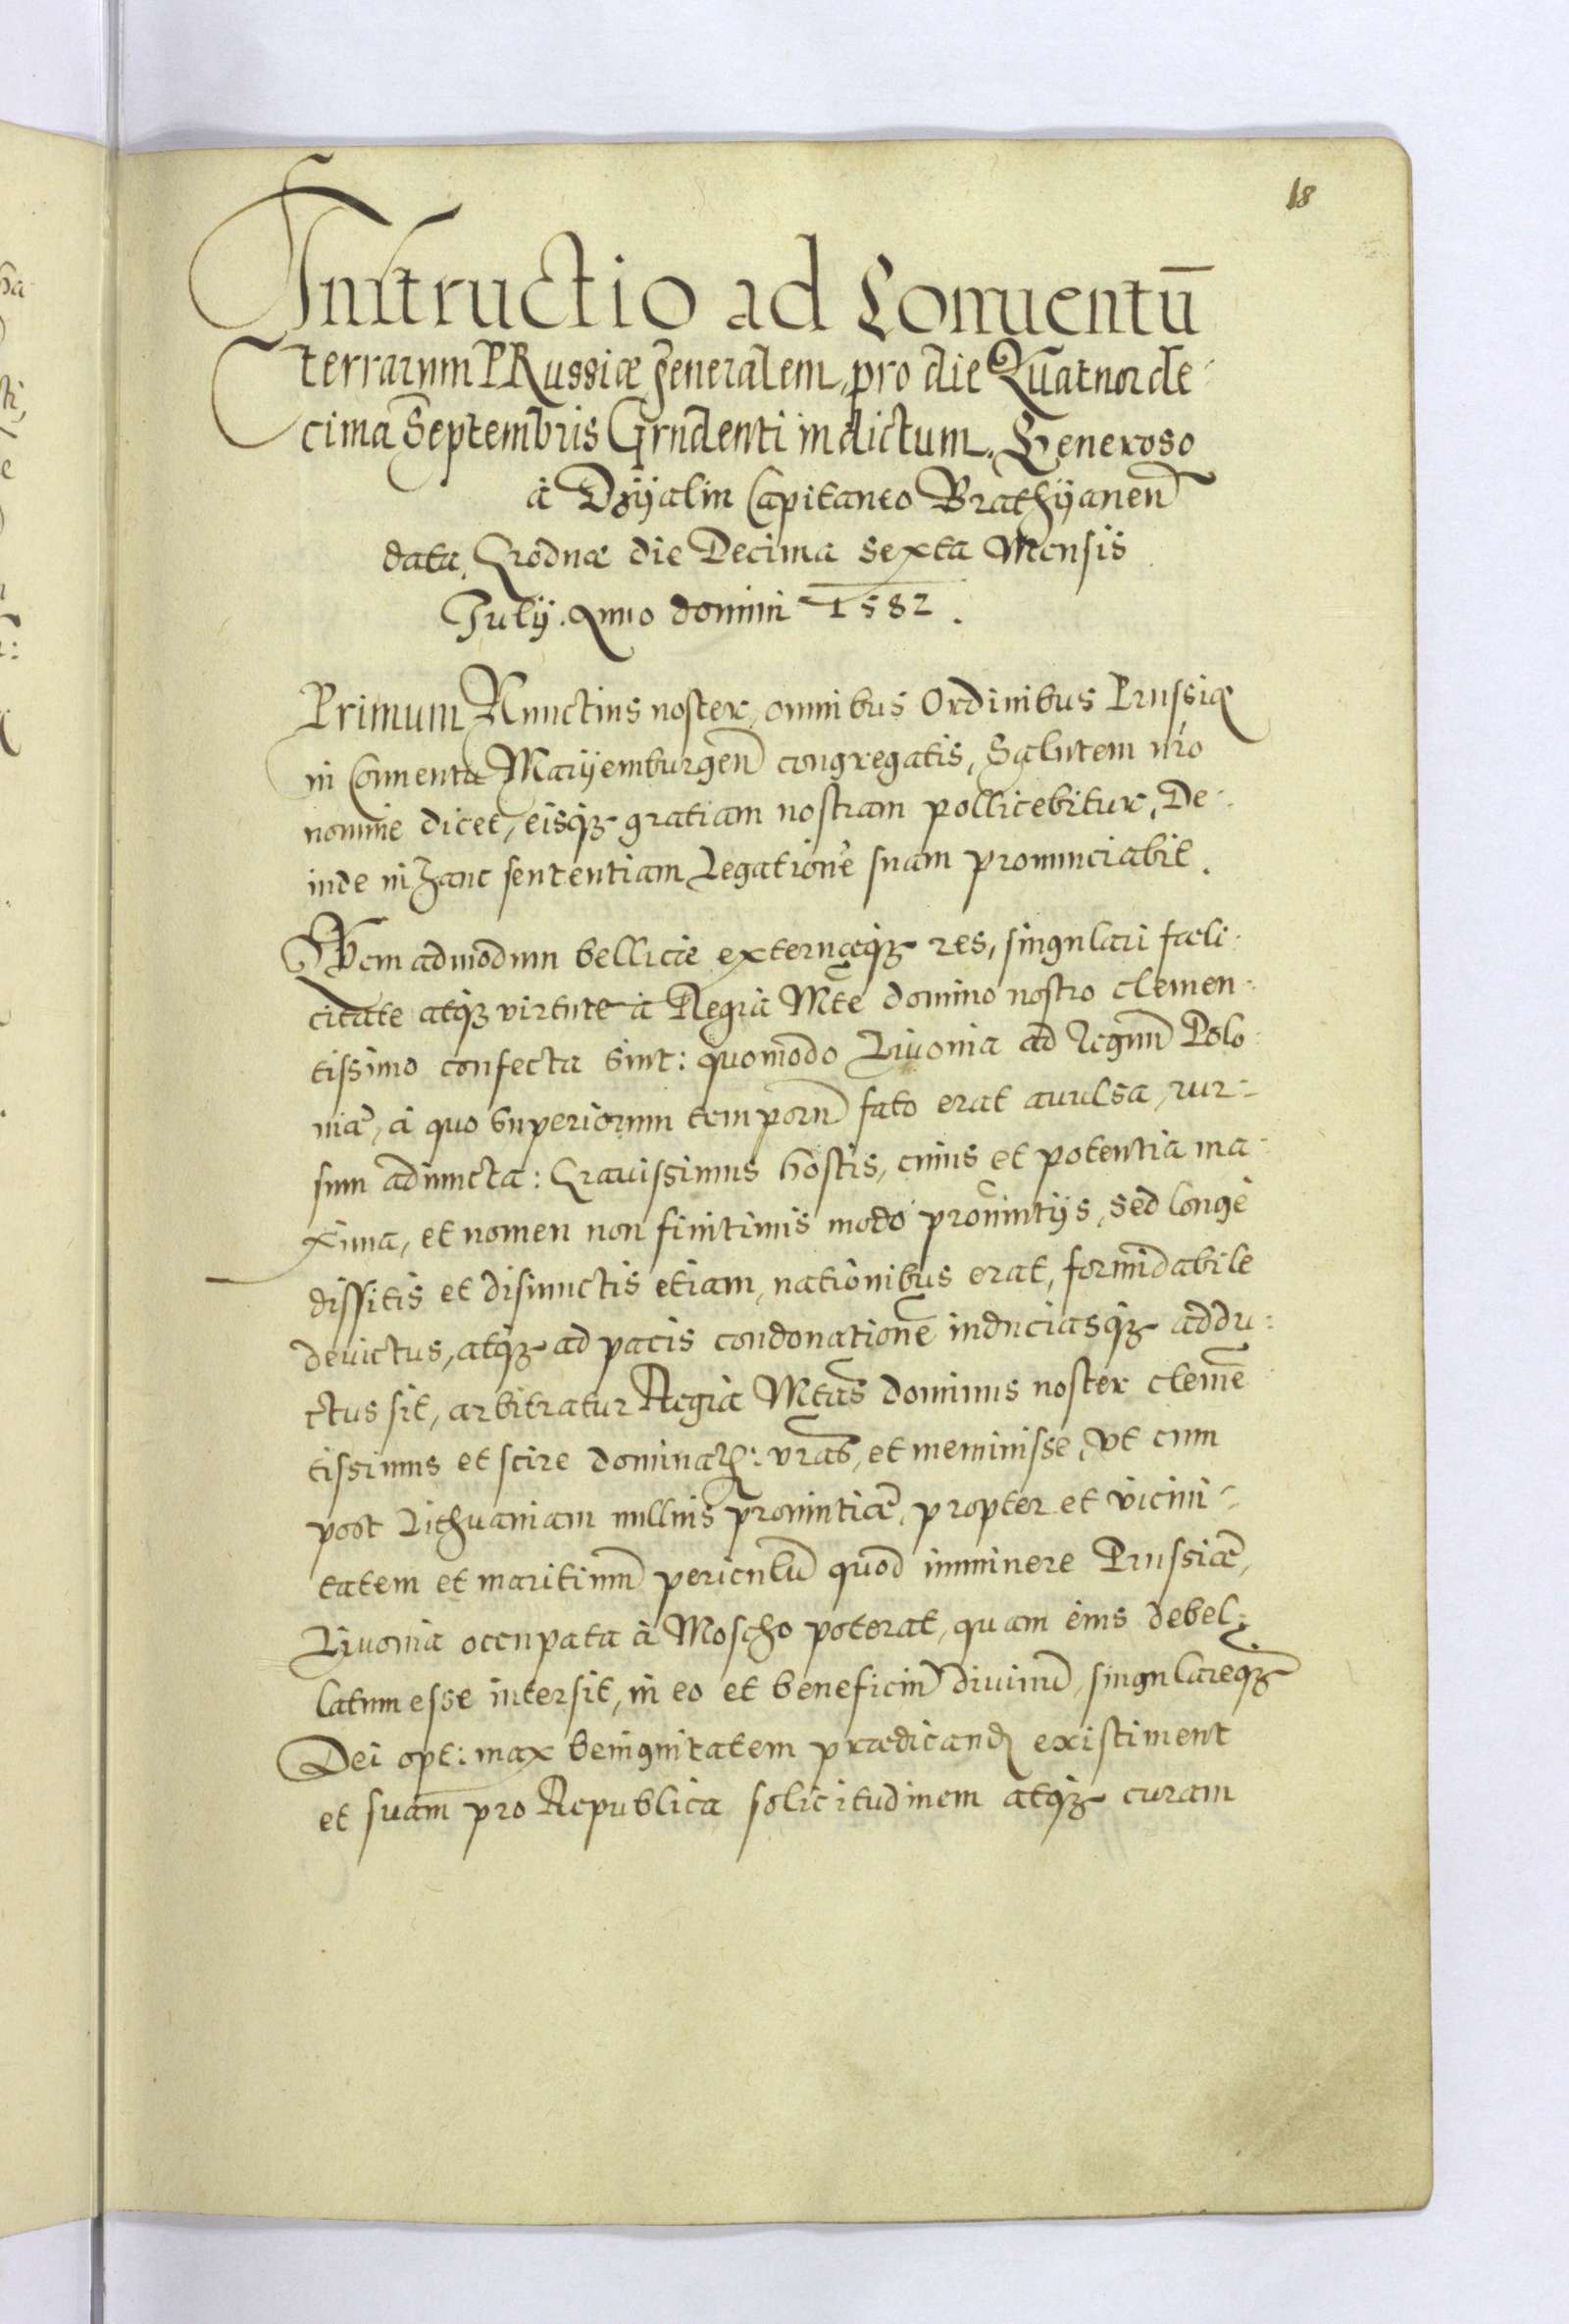 18
Instructio ad Conuentū
terrarum PRussiæ generalem, pro die Quatuorde-
cima Septembris Grudenti indictum. Generoso
à Dzÿalin Capitaneo Brathÿanen̄
data, Grodnæ die Decima sexta Mensis
Julÿ. Anno domini 1582.
Primum Nunctius noster, omnibus Ordinibus Prussię
in Conuentu Marÿemburgen̄ congregatis, Salutem nro
nomine dicet, eisq₃ gratiam nostram pollicebitur, De-
inde in hanc sententiam Legationē suam pronunciabit.
Quem admodum bellicæ externæq₃ res, singulari fæli-
citate atq₃ virtute à Regia Mte domino nostro clemen-
tissimo confecta sint: quomodo Liuonia ad Regnū Polo
niæ, à quo superiorum temporū fato erat auulsa, rur-
sum adiuncta: Grauissimus hostis, cuius et potentia ma-
xima, et nomen non finitimis modo prouintÿs, sed longè
dissitis et disiunctis etiam, nationibus erat, formidabile
deuictus, atq₃ ad pacis condonationē induciasq₃ addu-
ctus sit, arbitratur Regia Mtas dominus noster clemē
tissimus et scire dominaõ: vras, et meminisse, vt cum
post Lithuaniam nullius prouintiæ, propter et vicini-
tatem et maritimū periculū quod imminere Prussiæ,
Liuonia occupata à Moscho poterat, quam eius debel-
latum esse intersit, in eo et beneficiū diuinū, singulareq₃
Dei opt: max benignitatem prædicandā existiment
et suam pro Republica solicitudinem atq₃ curam